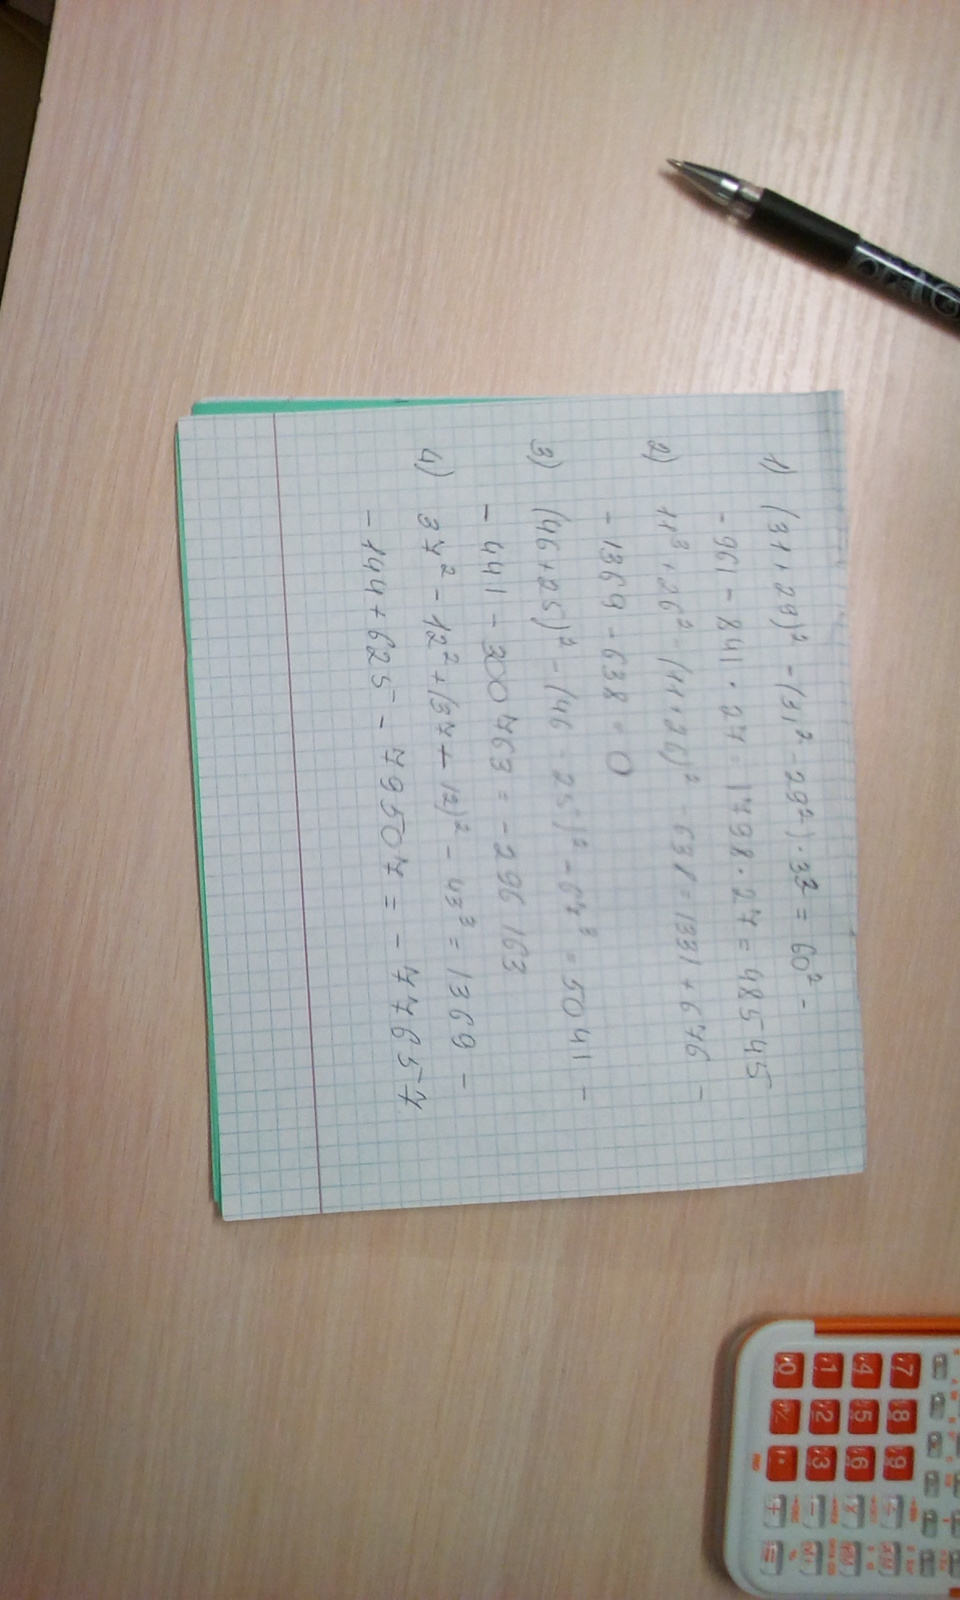 1) (31 + 29)² - (31² - 29²) · 3³ = 60² -
- 961 - 841 · 27 = 1798 · 27 = 48545
2) 11³ + 26² - (11 + 26)² - 638 = 1331 + 676 -
- 1369 - 638 = 0
3) (46 + 25)² - (46 - 25)² - 67³ = 5041 -
- 441 - 300763 = - 296163
4) 37² - 12² + (37 - 12)² - 43³ = 1369 -
- 144 + 625 - 79507 = - 77657
7 8 9
4 5 6
1 2 3
0 % ·